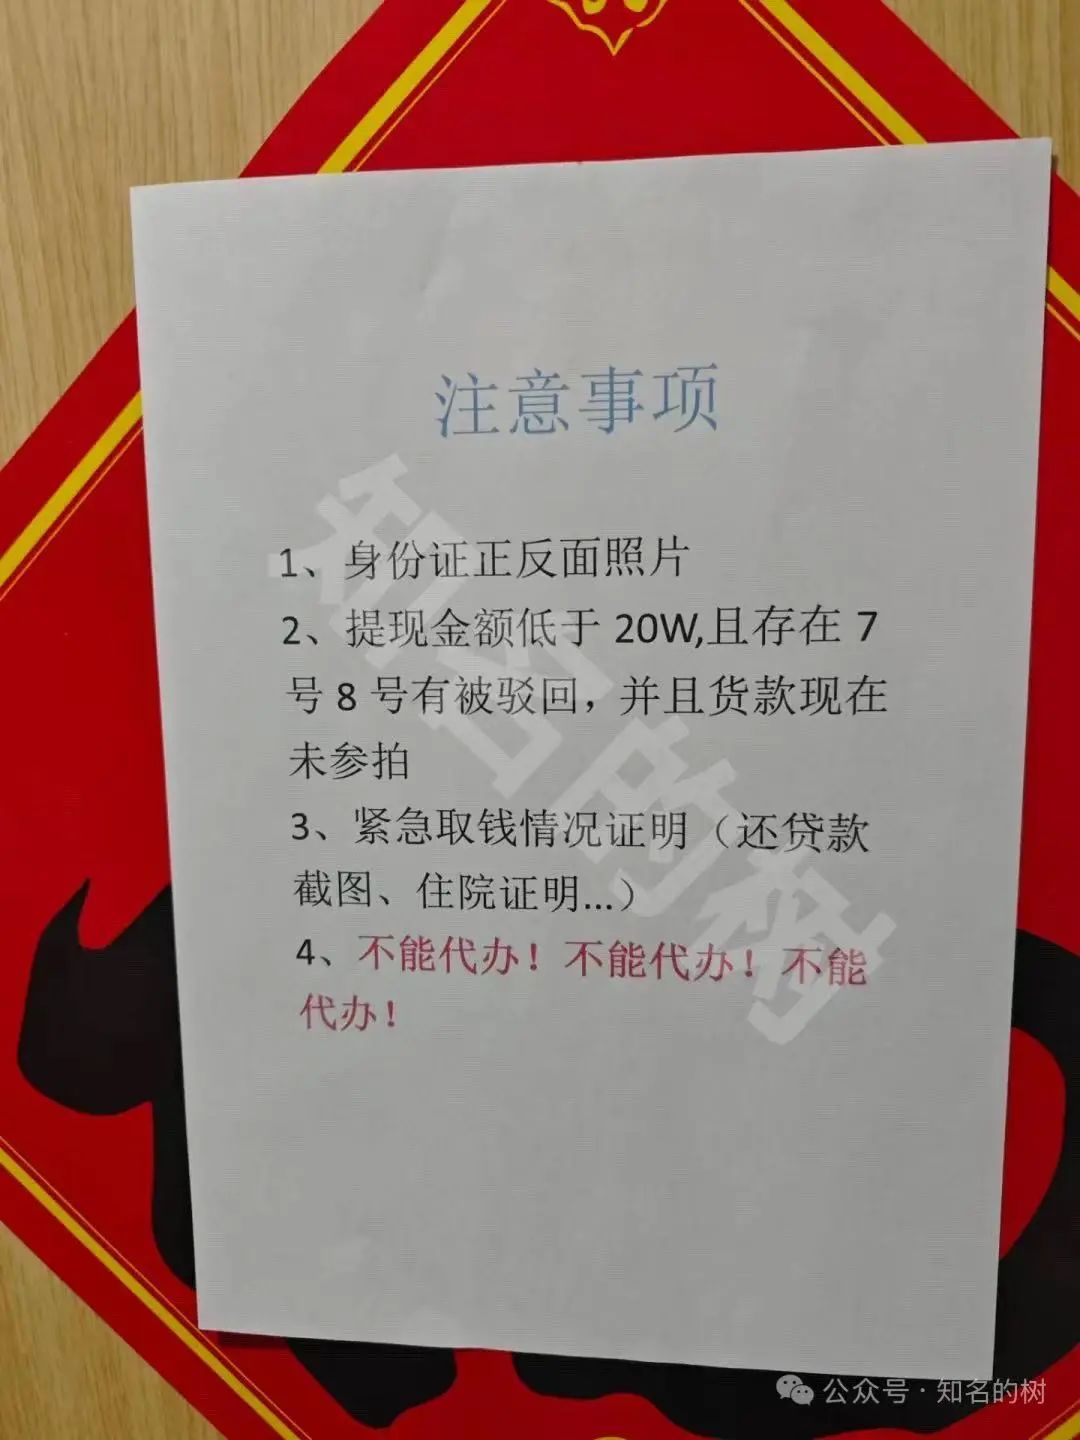 注意事项
1、身份证正反面照片
2、提现金额低于 20W,且存在 7
号 8 号有被驳回，并且货款现在
未参拍
3、紧急取钱情况证明（还贷款
截图、住院证明...）
4、不能代办！不能代办！不能
代办！
知名的树
公众号·知名的树